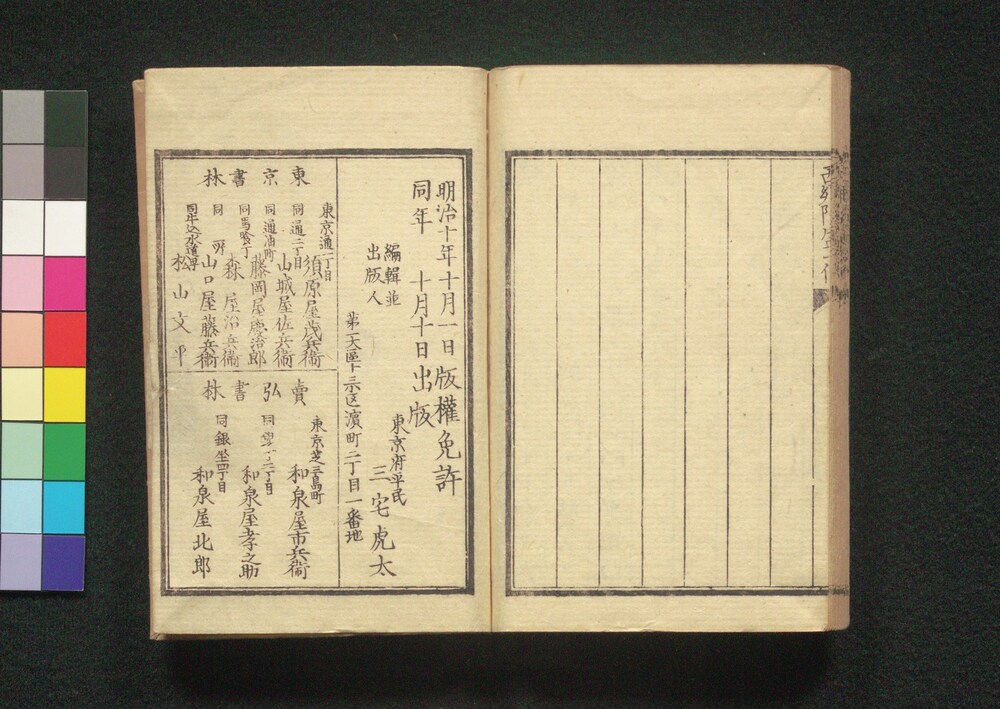 明治十年十月一日版權免許
同年 十月十日出版
編輯並
出版人
東京府平民
三宅虎太
第一大區十三小区濵町二丁目一番地
東京書林
東京通一丁目
須原屋茂兵衞
同通二丁目
山城屋佐兵衞
同通油町
藤岡屋慶治郎
同馬喰丁
森屋治兵衞
同所
山口屋藤兵衞
松山文
賣弘書林
東京芝三島町
和泉屋市兵衞
同 二丁目
和泉屋孝之助
同銀坐四丁目
和泉屋北郎